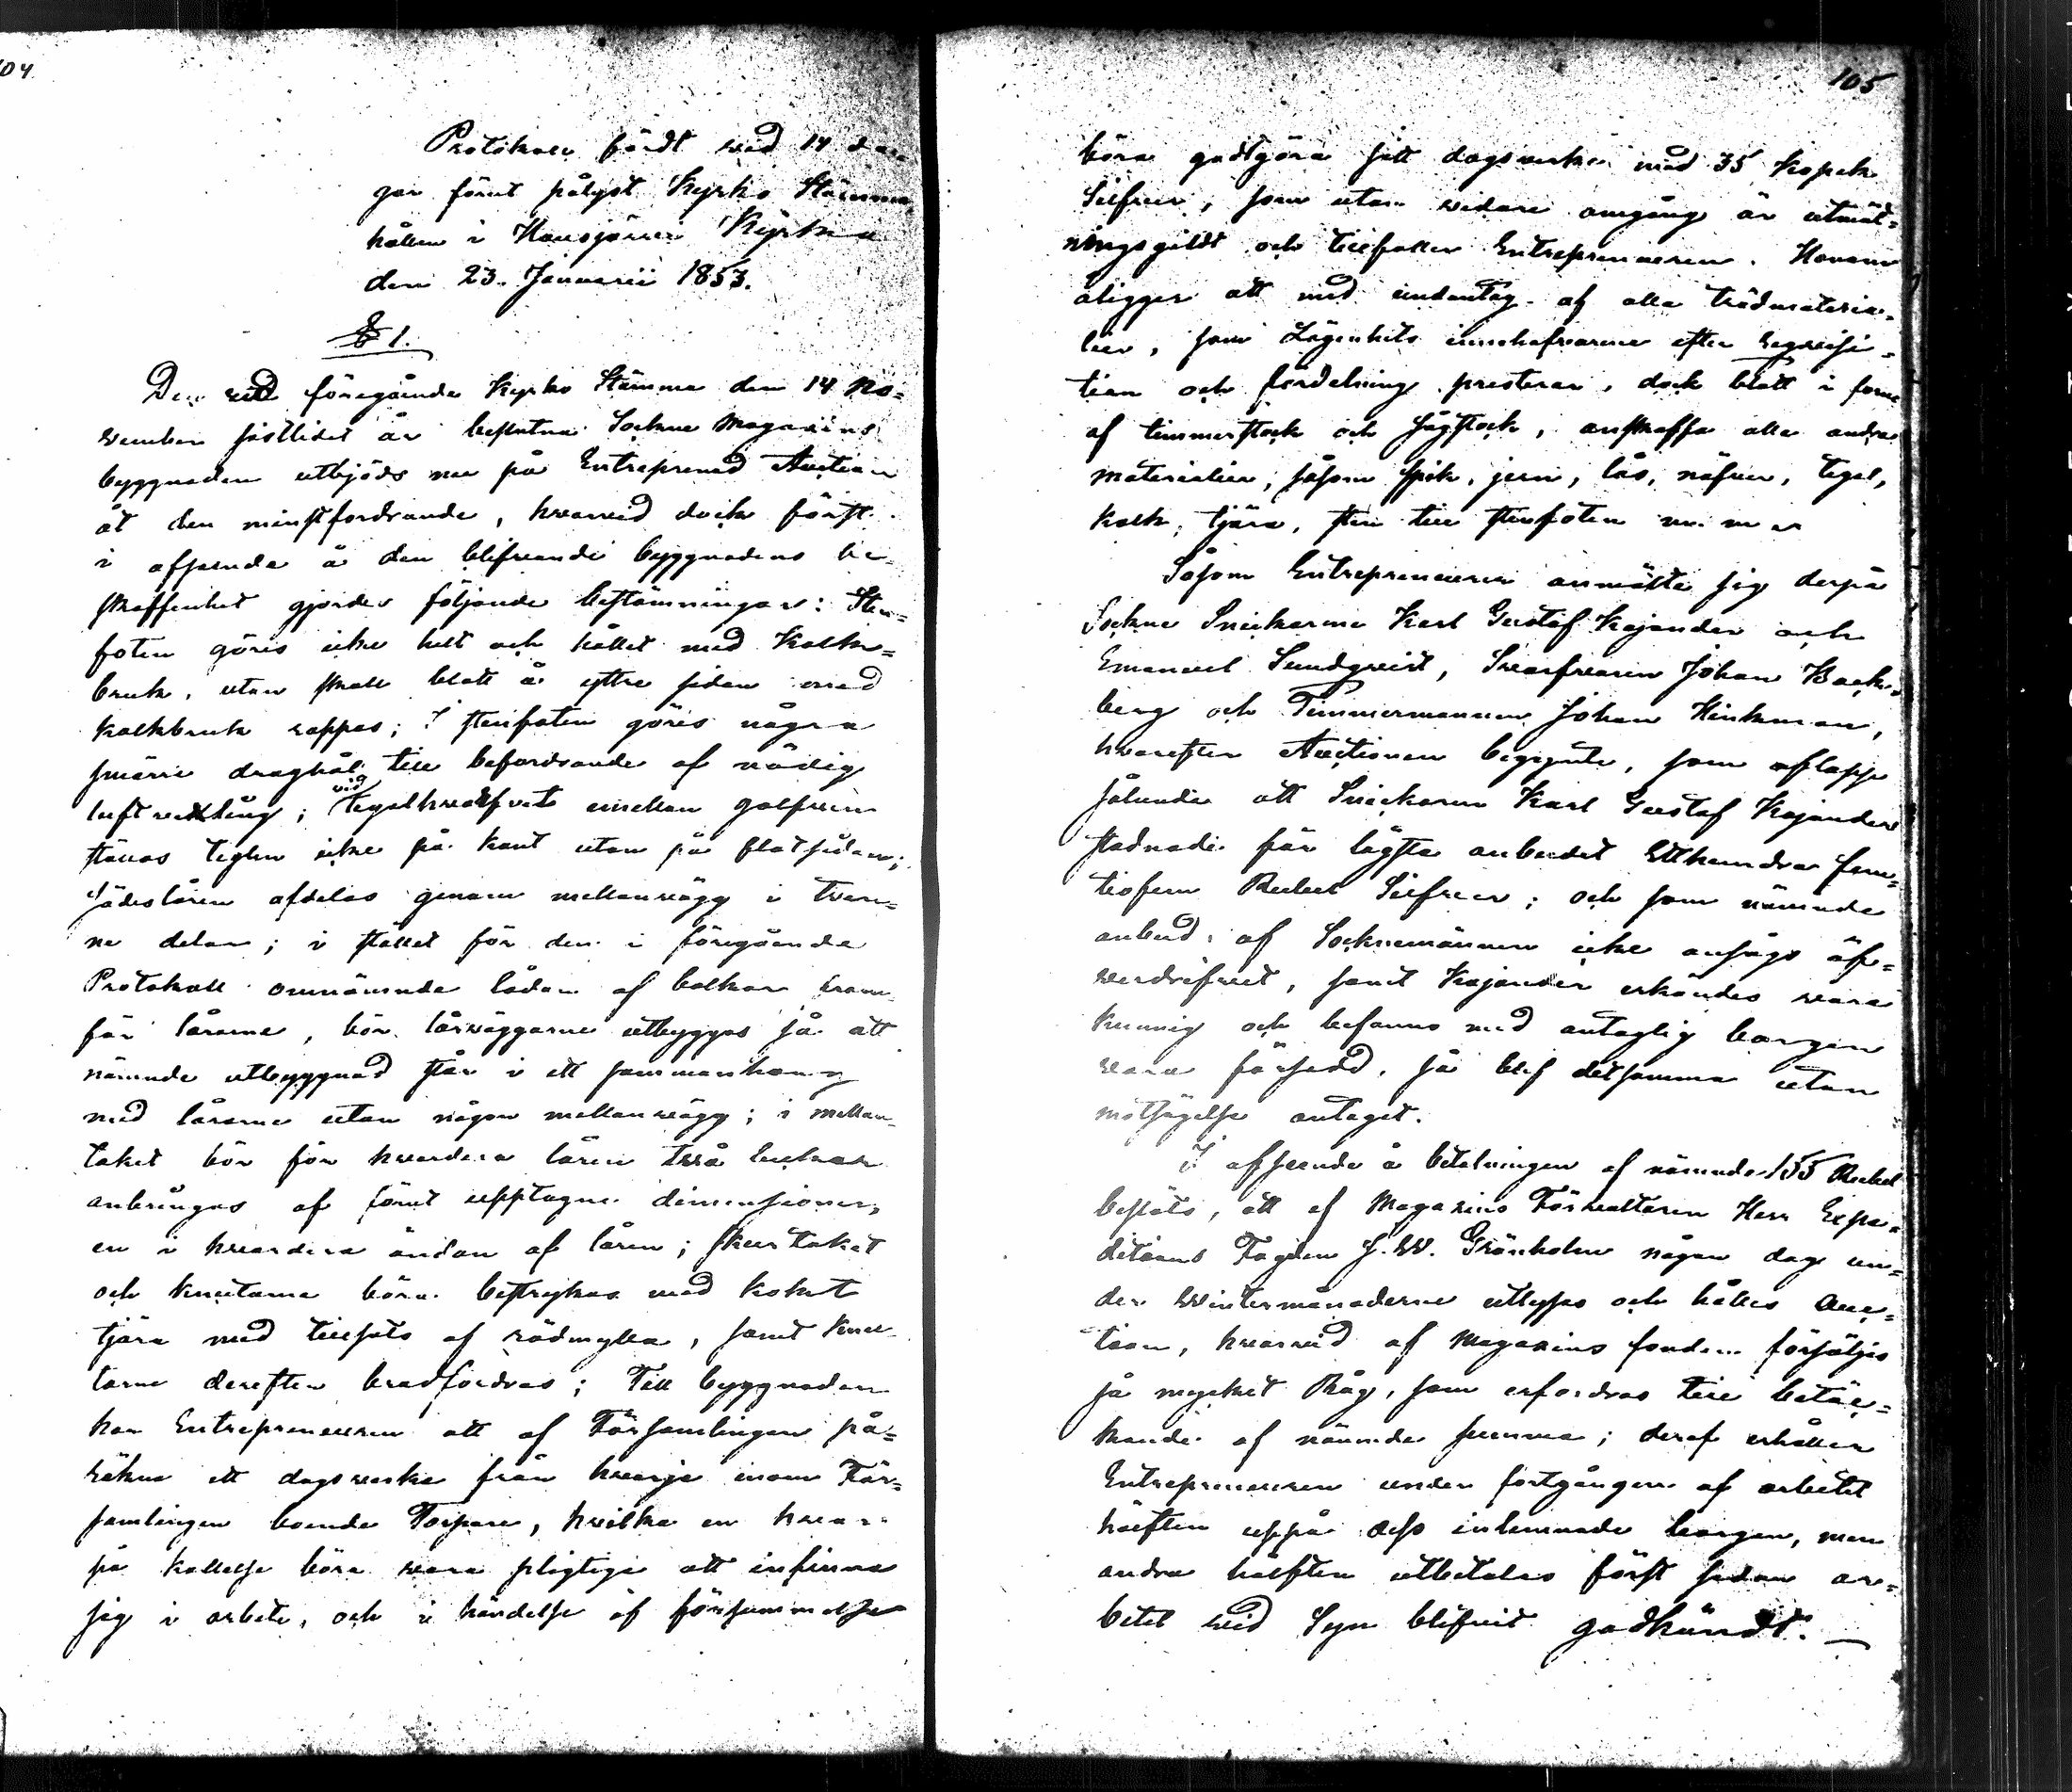 104
Protokoll fördt wid 14 da-
gar förut pålyst Kyrko Stämma,
hållen i Hausjärwi Kyrka
den 23. Januarii 1853.
§ 1.
Den wid föregående Kyrko Stämma den 14 No=
wember sistlidet år beslutna Sockne Magazins
byggnaden utbjöds nu på Entreprenad Auction
åt den minstfordrande, hwarwid dock först
i afseende å den blifwande byggnadens be-
skaffenhet gjordes följande bestämningar: Sten=
foten göres icke helt och hållet med Kalk=
bruk, utan skall blott å yttre sidan med
kalkbruk rappas; I stenfoten göres några
smärre draghål till befordrande af nödig
luftwexling; wid tegelhwalfwet emellan golfwen
ställas teglen icke på kant utan på flatsidan;
Sädeslåren afdelas genom mellanwägg i twen=
ne delar; i stället för den i föregående
Protokoll omnämnde lådan af balkar fram-
för lårarne, bör lårwäggarne utbyggas så att
nämnde utbyggnad står i ett sammanhang
med lårarne utan någon mellanwägg; i mellan-
taket bör för hwardera låren twå luckor
anbringas af förut upptagne dimensioner,
en i hwardera ändan af låren; skurtaket
och knutarne böra bestrykas med kokt
tjära med tillsats af rödmylla, samt knu-
tarne derefter bradfordras; Till byggnaden
har Entrepreneuren att af Församlingen på=
räkna ett dagswerke från hwarje inom För=
samlingen boende Torpare, hwilka en hwar
på kallelse böra wara pligtige att infinna
sig i arbete, och i händelse af försummelse
105
böra godtgöra sitt dagswerke med 35 Kopek
Silfwer, som utan widare omgång är utmät=
ningsgildt och tillfaller Entrepreneuren. Honom
åligger att med undantag af alla trädmateria=
lier, som Lägenhets innehafwarne efter Reqwisi=
tion och fördelning prestera, dock blott i form
af timmerstock och sågstock, anskaffa alla andra
materialier, såsom spik, jern, lås, näfwer, tegel,
kalk, tjära, sten till stenfoten m. m.
Såsom Entrepreneurer anmälte sig derpå
Sockne Snickarne Karl Gustaf Kajander och
Emanuel Sundqwist, Swarfwaren Johan Back=
berg och Timmermannen Johan Hinkman,
hwarefter Auctionen begynte, som aflopp
sålunda att Snickaren Karl Gustaf Kajander
stadnade för lägsta anbudet Etthundra fem=
tiofem Rubel Silfwer; och som nämnde
anbud af Socknemännen icke ansågs öf=
werdrifwet, samt Kajander erkändes wara
kunnig och befanns med antaglig borgen
wara försedd, så blef detsamma utan
motsägelse antaget.
I afseende å betalningen af nämnde 155 Rubel
beslöts, att af Magazins Förwaltaren Herr Expe=
ditions Fogden J. W. Grönholm någon dag un=
der Wintermånaderne utlyses och hålles Auc=
tion, hwarwid af Magazins fonden försäljes
så mycket Råg, som erfordras till betäc=
kande af nämnde summa; deraf erhåller
Entrepreneuren under fortgången af arbetet
hälften uppå dess inlemnade borgen, men
andra hälften utbetalas först sedan ar=
betet wid Syn blifwit godkändt. —